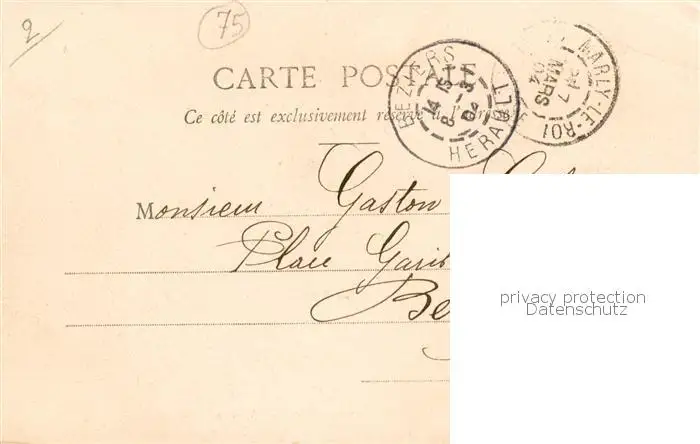 2
75
CARTE POSTALE
Ce côté est exclusivement réservé à l'adresse
BEZIERS
HERAULT
MARLY-LE-ROI
7
MARS
04
Monsieur Gaston
Place Garib
Be
privacy protection
Datenschutz